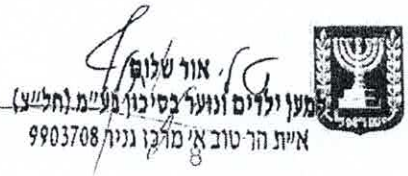 אור שלום
למען ילדים ונוער בסיכון בע"מ (חל"צ)
איית הר טוב א' מרכז נגיר 9903708
ישראל